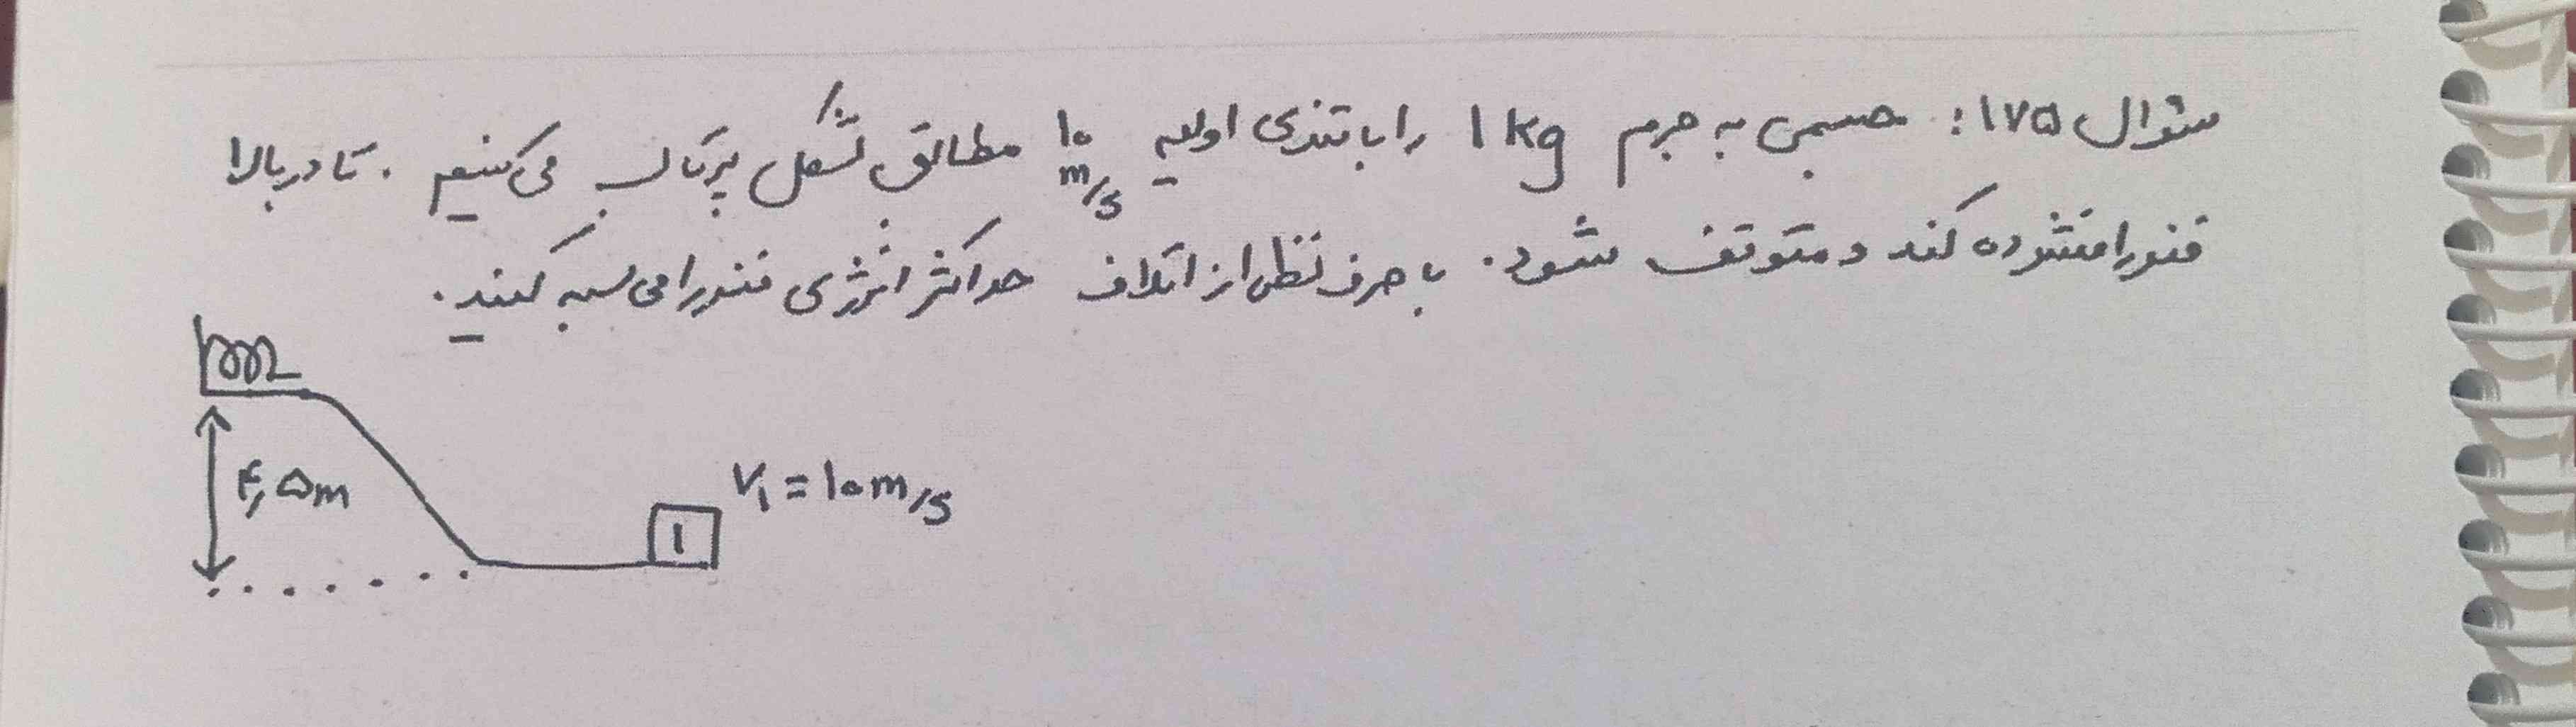 سئوال ۱۷۵: جسمی به جرم 1 kg را با تندی اولیه ۱۰ m/s مطابق شکل پرتاب می‌کنیم. تا در بالا
فنر را فشرده کند و متوقف شود. با صرف نظر از اتلاف حداکثر انرژی فنر را محاسبه کنید.
۴,۵m
V₁ = ۱۰m/s
1